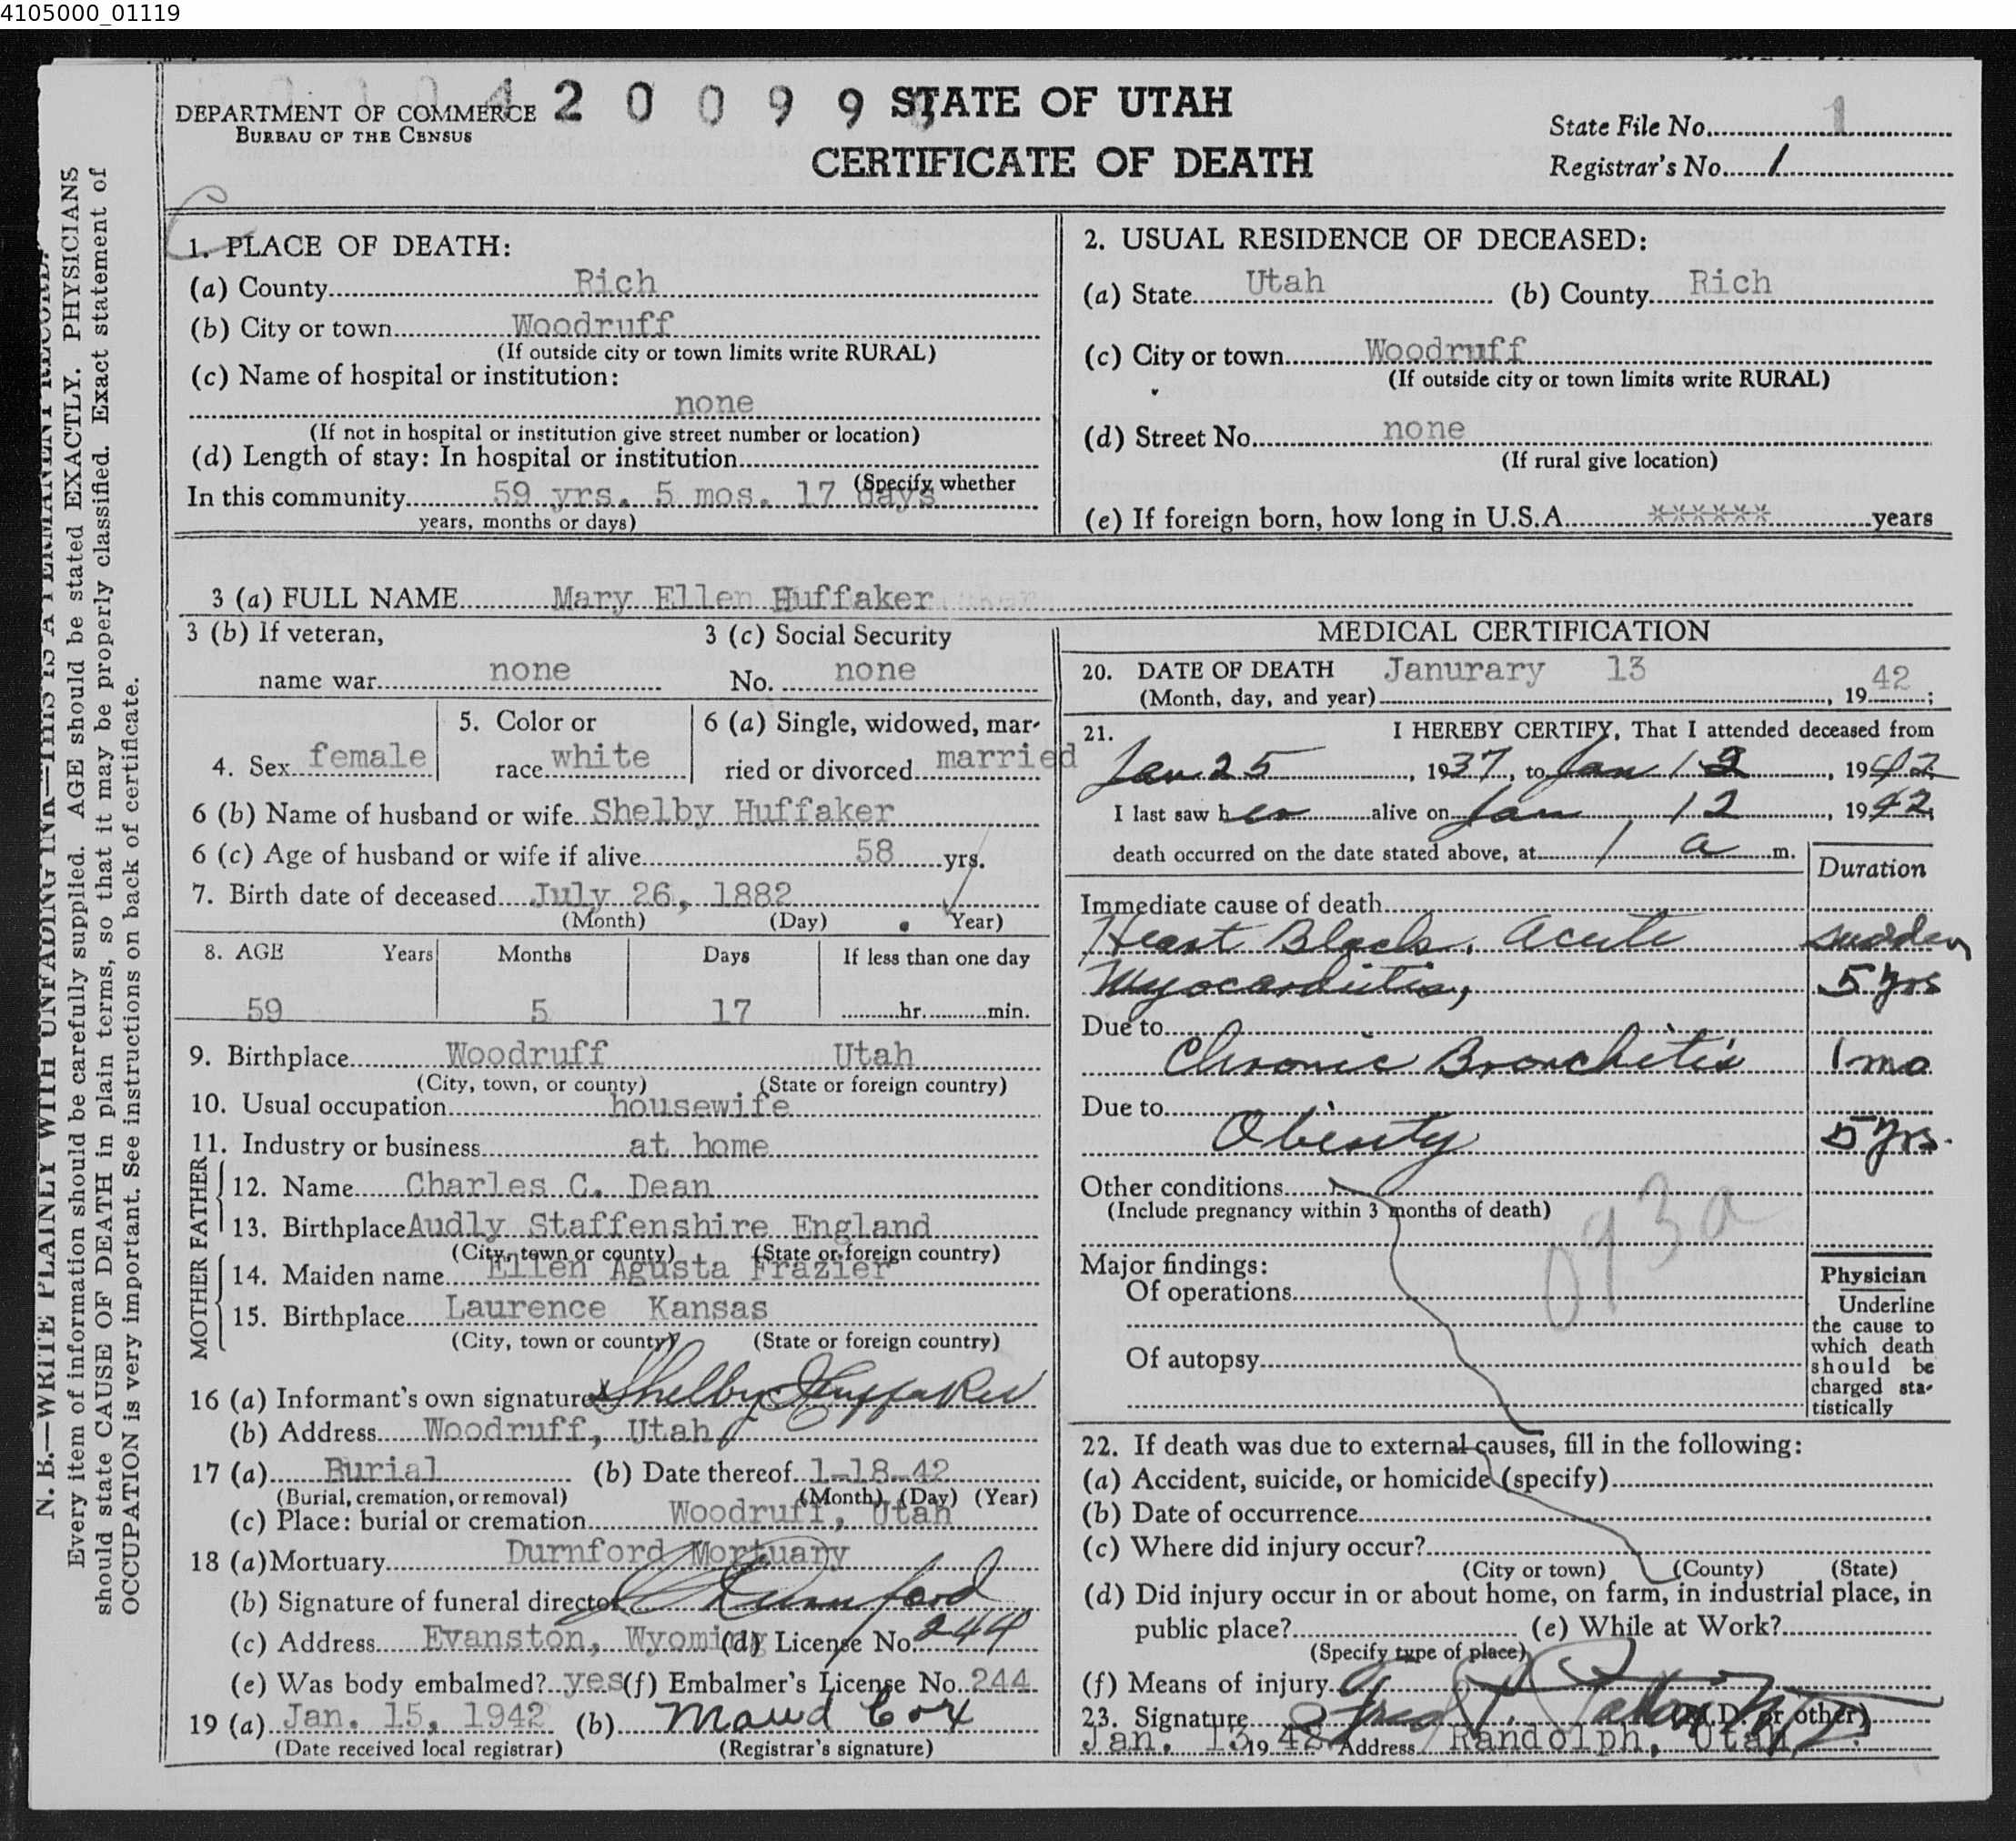 4105000_01119
DEPARTMENT OF COMMERCE
BUREAU OF THE CENSUS
4 2 0 0 9 9
STATE OF UTAH
CERTIFICATE OF DEATH
State File No. 1
Registrar's No. 1
N. B.—WRITE PLAINLY WITH UNFADING INK—THIS IS A PERMANENT RECORD.
Every item of information should be carefully supplied. AGE should be stated EXACTLY. PHYSICIANS
should state CAUSE OF DEATH in plain terms, so that it may be properly classified. Exact statement of
OCCUPATION is very important. See instructions on back of certificate.
1. PLACE OF DEATH:
(a) County Rich
(b) City or town Woodruff
(If outside city or town limits write RURAL)
(c) Name of hospital or institution:
none
(If not in hospital or institution give street number or location)
(d) Length of stay: In hospital or institution
(Specify whether
In this community 59 yrs. 5 mos. 17 days
years, months or days)
2. USUAL RESIDENCE OF DECEASED:
(a) State Utah (b) County Rich
(c) City or town Woodruff
(If outside city or town limits write RURAL)
(d) Street No. none
(If rural give location)
(e) If foreign born, how long in U.S.A. ****** years
3 (a) FULL NAME Mary Ellen Huffaker
3 (b) If veteran,
name war none
3 (c) Social Security
No. none
4. Sex female
5. Color or
race white
6 (a) Single, widowed, mar-
ried or divorced married
6 (b) Name of husband or wife Shelby Huffaker
6 (c) Age of husband or wife if alive 58 yrs.
7. Birth date of deceased July 26, 1882
(Month) (Day) Year)
8. AGE Years Months Days If less than one day
59 5 17 hr. min.
9. Birthplace Woodruff Utah
(City, town, or county) (State or foreign country)
10. Usual occupation housewife
11. Industry or business at home
FATHER
12. Name Charles C. Dean
13. Birthplace Audly Staffenshire England
(City, town or county) (State or foreign country)
MOTHER
14. Maiden name Ellen Agusta Frazier
15. Birthplace Laurence Kansas
(City, town or county) (State or foreign country)
16 (a) Informant's own signature x Shelby Huffaker
(b) Address Woodruff, Utah
17 (a) Burial (b) Date thereof 1-18-42
(Burial, cremation, or removal) (Month) (Day) (Year)
(c) Place: burial or cremation Woodruff, Utah
18 (a) Mortuary Durnford Mortuary
(b) Signature of funeral director Durnford
(c) Address Evanston, Wyoming (d) License No. 244
(e) Was body embalmed? yes (f) Embalmer's License No. 244
19 (a) Jan. 15, 1942 (b) Maud Cox
(Date received local registrar) (Registrar's signature)
MEDICAL CERTIFICATION
20. DATE OF DEATH Janurary 13
(Month, day, and year) 1942;
21. I HEREBY CERTIFY, That I attended deceased from
Jan 25, 1937, to Jan 12, 1942
I last saw her alive on Jan 12, 1942;
death occurred on the date stated above, at 1 a m.
Duration
Immediate cause of death
Heart Block, Acute sudden
Myocarditis, 5 yrs
Due to
Chronic Bronchitis 1 mo
Due to
Obesity 5 yrs.
Other conditions
(Include pregnancy within 3 months of death)
093a
Major findings:
Of operations
Of autopsy
Physician
Underline
the cause to
which death
should be
charged sta-
tistically
22. If death was due to external causes, fill in the following:
(a) Accident, suicide, or homicide (specify)
(b) Date of occurrence
(c) Where did injury occur?
(City or town) (County) (State)
(d) Did injury occur in or about home, on farm, in industrial place, in
public place? (e) While at Work?
(Specify type of place)
(f) Means of injury
23. Signature (M.D. or other)
Jan. 13 19 42 Address Randolph, Utah